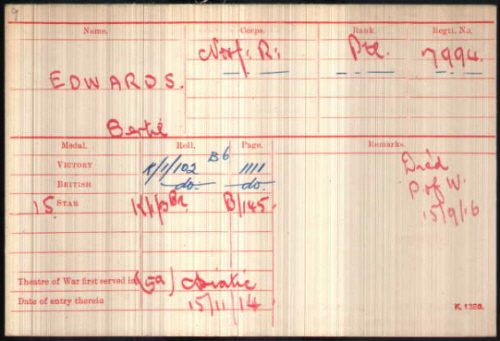 Name. Corps. Rank. Regtl. No.
EDWARDS. Norf: R: Pte. 7994.
Bertie
Medal. Roll. Page. Remarks.
VICTORY K/1/102 B6 1111
BRITISH do. do.
15 STAR B/145.
Died
P of W.
15/9/16
Theatre of War first served in (5a) Asiatic
Date of entry therein 15/11/14
K. 1380.